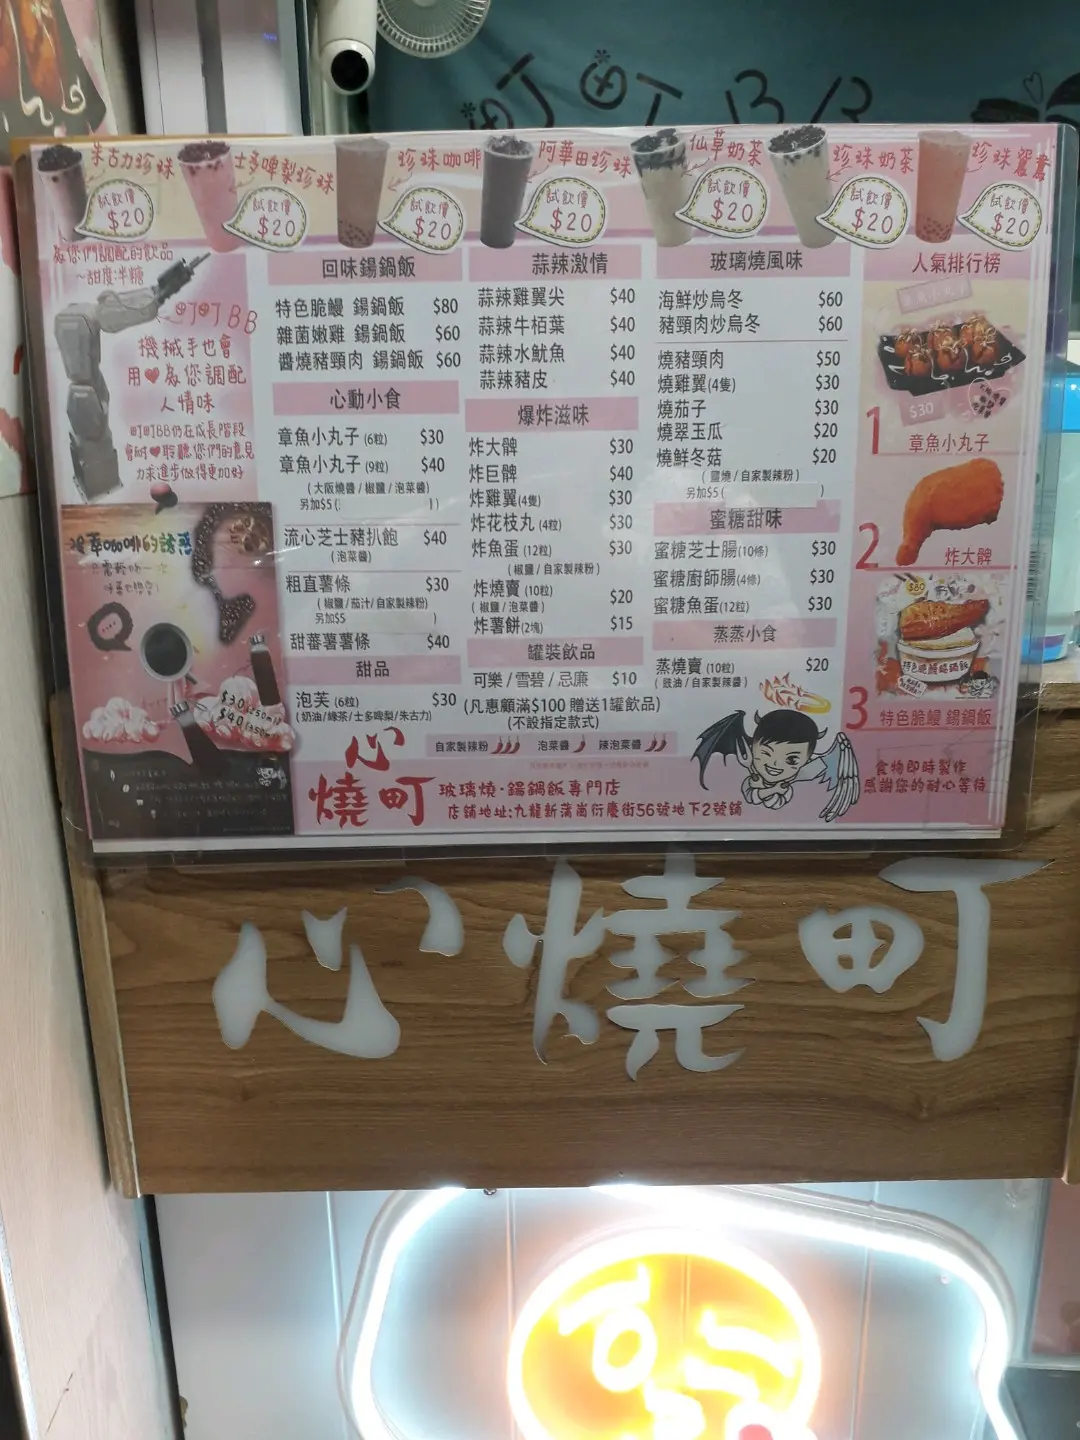 町町BB
朱古力珍珠
試飲價
$20
士多啤梨珍珠
試飲價
$20
珍珠咖啡
試飲價
$20
阿華田珍珠
試飲價
$20
仙草奶茶
試飲價
$20
珍珠奶茶
試飲價
$20
珍珠鴛鴦
試飲價
$20
為您們調配的飲品
~甜度:半糖
町町BB
機械手也會
用❤為您調配
人情味
町町BB仍在成長階段
會耐❤聆聽您們的意見
力求進步做得更加好
冷萃咖啡的誘惑
$30(350ml)
$40
回味鍚鍋飯
特色脆鰻 鍚鍋飯 $80
雜菌嫩雞 鍚鍋飯 $60
醬燒豬頸肉 鍚鍋飯 $60
心動小食
章魚小丸子(6粒) $30
章魚小丸子(9粒) $40
(大阪燒醬/椒鹽/泡菜醬)
另加$5( )
流心芝士豬扒飽 $40
(泡菜醬)
粗直薯條 $30
(椒鹽/茄汁/自家製辣粉)
另加$5 )
甜蕃薯薯條 $40
甜品
泡芙(6粒) $30
(奶油/綠茶/士多啤梨/朱古力)
蒜辣激情
蒜辣雞翼尖 $40
蒜辣牛栢葉 $40
蒜辣水魷魚 $40
蒜辣豬皮 $40
爆炸滋味
炸大髀 $30
炸巨髀 $40
炸雞翼(4隻) $30
炸花枝丸(4粒) $30
炸魚蛋(12粒) $30
(椒鹽/自家製辣粉)
炸燒賣(10粒) $20
(椒鹽/泡菜醬)
炸薯餅(2塊) $15
罐裝飲品
可樂/雪碧/忌廉 $10
(凡惠顧滿$100 贈送1罐飲品)
(不設指定款式)
玻璃燒風味
海鮮炒烏冬 $60
豬頸肉炒烏冬 $60
燒豬頸肉 $50
燒雞翼(4隻) $30
燒茄子 $30
燒翠玉瓜 $20
燒鮮冬菇 $20
(鹽燒/自家製辣粉)
另加$5( )
蜜糖甜味
蜜糖芝士腸(10條) $30
蜜糖廚師腸(4條) $30
蜜糖魚蛋(12粒) $30
蒸蒸小食
蒸燒賣(10粒) $20
(豉油/自家製辣醬)
自家製辣粉 泡菜醬 辣泡菜醬
人氣排行榜
章魚小丸子
$30
1 章魚小丸子
2 炸大髀
$80
特色脆鰻鍚鍋飯
3 特色脆鰻 鍚鍋飯
食物即時製作
感謝您的耐心等待
心燒町
玻璃燒·鍚鍋飯專門店
店鋪地址:九龍新蒲崗衍慶街56號地下2號鋪
心燒町